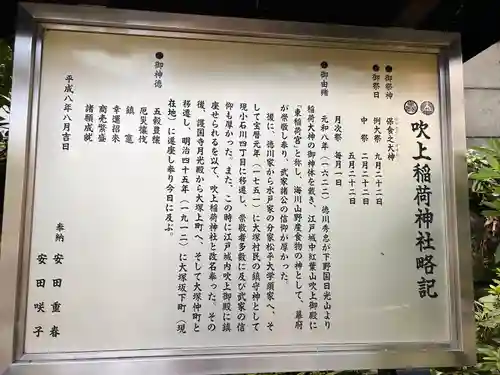 吹上稲荷神社略記
●御祭神
保食之大神
●御祭日
例大祭 九月二十二日
中祭 二月二十二日
五月二十二日
月次祭 毎月一日
●御由緒
元和八年(一六二二)徳川秀忠が下野国日光山より
稲荷大神の御神体を戴き、江戸城中紅葉山吹上御殿に
「東稲荷宮」と称し、海川山野産食物の神として、幕府
が崇敬し奉り、武家諸公の信仰が厚かった。
後に、徳川家から水戸家の分家松平大学頭家へ、そ
して宝暦元年(一七五一)に大塚村民の鎮守神として
現小石川四丁目に移遷し、崇敬者多数に及び武家の信
仰も厚かった。また、この時に江戸城内吹上御殿に鎮
座せられるを以て、吹上稲荷神社と改名奉った。その
後、護国寺月光殿から大塚上町へ、そして大塚仲町と
移遷し、明治四十五年(一九一二)に大塚坂下町(現
在地)に遷座し奉り今日に及ぶ。
●御神徳
五穀豊穣
厄災攘伐
鎮竃
幸運招来
商売繁盛
諸願成就
平成八年八月吉日
奉納 安田重春
安田咲子